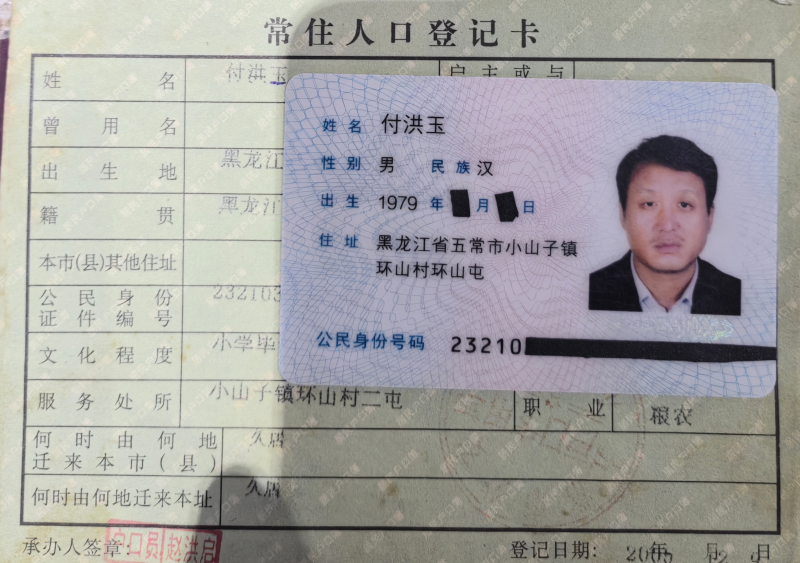 常住人口登记卡
姓名 付洪玉 户主或与
曾用名
出生地 黑龙江
籍贯 黑龙江
本市(县)其他住址
公民身份证件编号 232103
文化程度 小学毕
服务处所 小山子镇环山村二屯 职业 粮农
何时由何地迁来本市(县) 久居
何时由何地迁来本址 久居
承办人签章: 户口员 赵洪启 登记日期: 年 月 日
姓名 付洪玉
性别 男 民族 汉
出生 1979 年 月 日
住址 黑龙江省五常市小山子镇
环山村环山屯
公民身份号码 23210